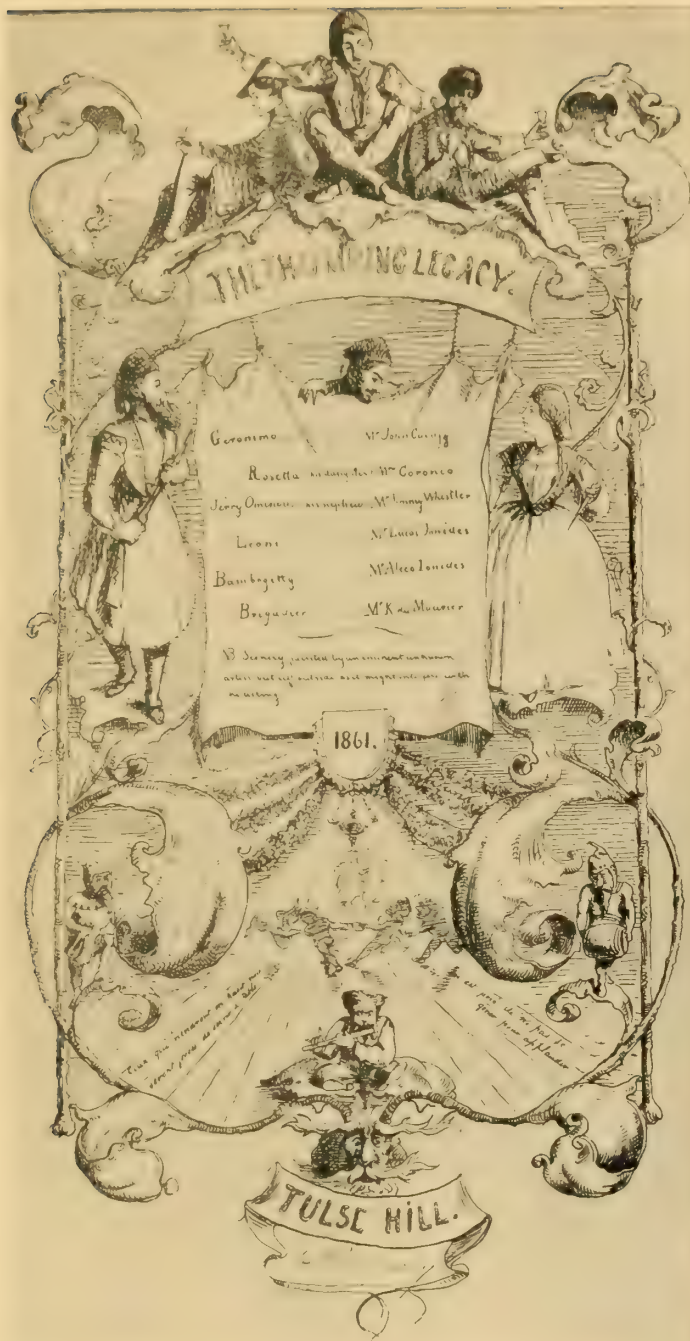 THE THUMPING LEGACY.
Geronimo Mr John Cavafy
Rosetta his daughter Mrs Coronio
Jerry Ominous his nephew Mr Jimmy Whistler
Leoni Mr Lucas Ionides
Bambogetty Mr Aleco Ionides
Brigadier Mr K du Maurier
NB Scenery painted by an eminent unknown
artist
no
1861.
en prié de ne pas se
gêner pour applaudir
TULSE HILL.